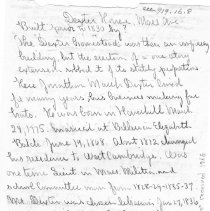 see 919.16.8
Dexter House, Mass Ave
Built prior to 1830 by?
The "Dexter Homestead" was then an imposing
building, but the erection of a one story
extension robbed it of its stately proportions
here Jonathan Marsh Dexter lived
for many years, his business making fur
hats. He was born in Haverhill March
24, 1775. Married at Billerica Elizabeth
Balch June 14, 1808. Abt 1812 changed
his residence to West Cambridge. Was
one time Lieut in Mass Militia and
school Committee man from 1828-29-1835-37.
Mr. Dexter was chosen Jan 17, 1830